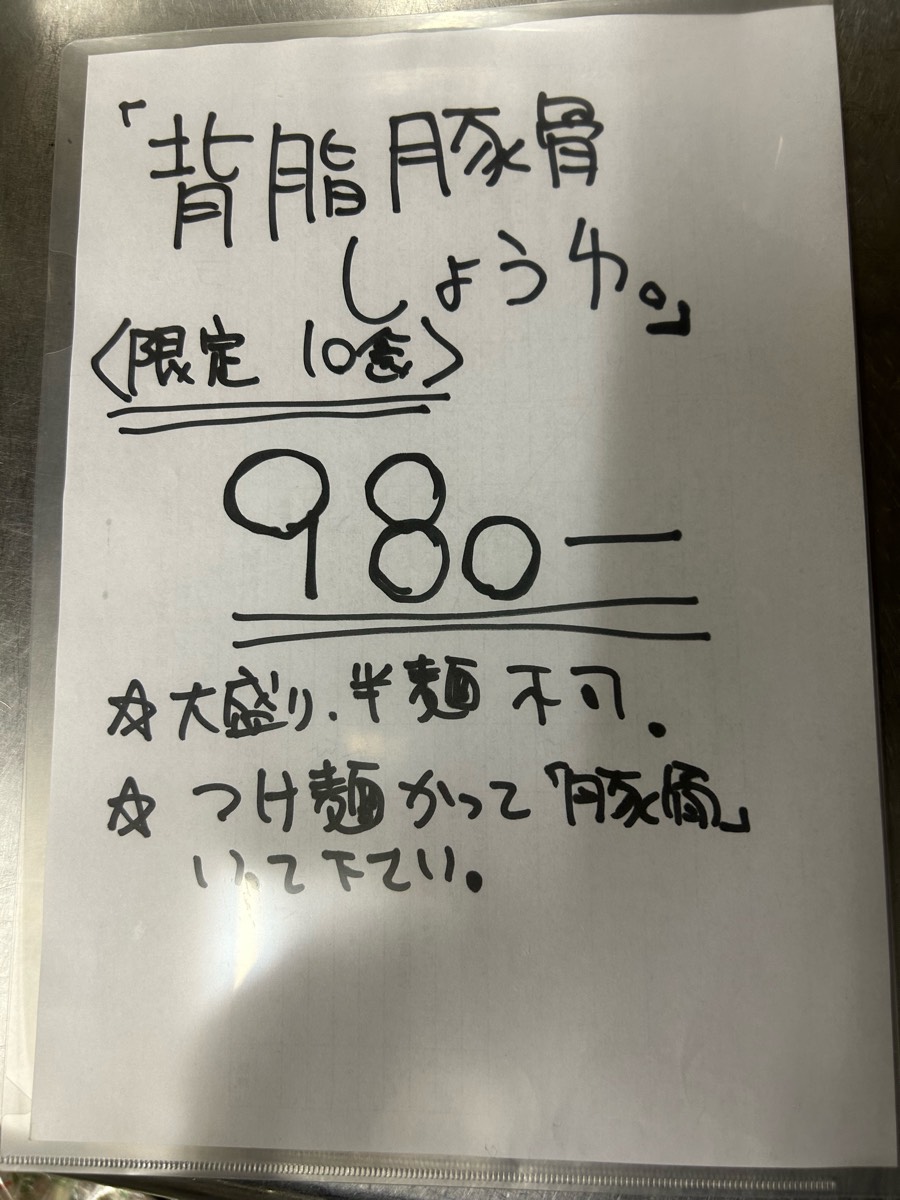 「背脂豚骨
しょうゆ。」
〈限定 10食〉
980ー
☆大盛り、半麺 不可。
☆つけ麺かって「豚骨」
いって下てい。